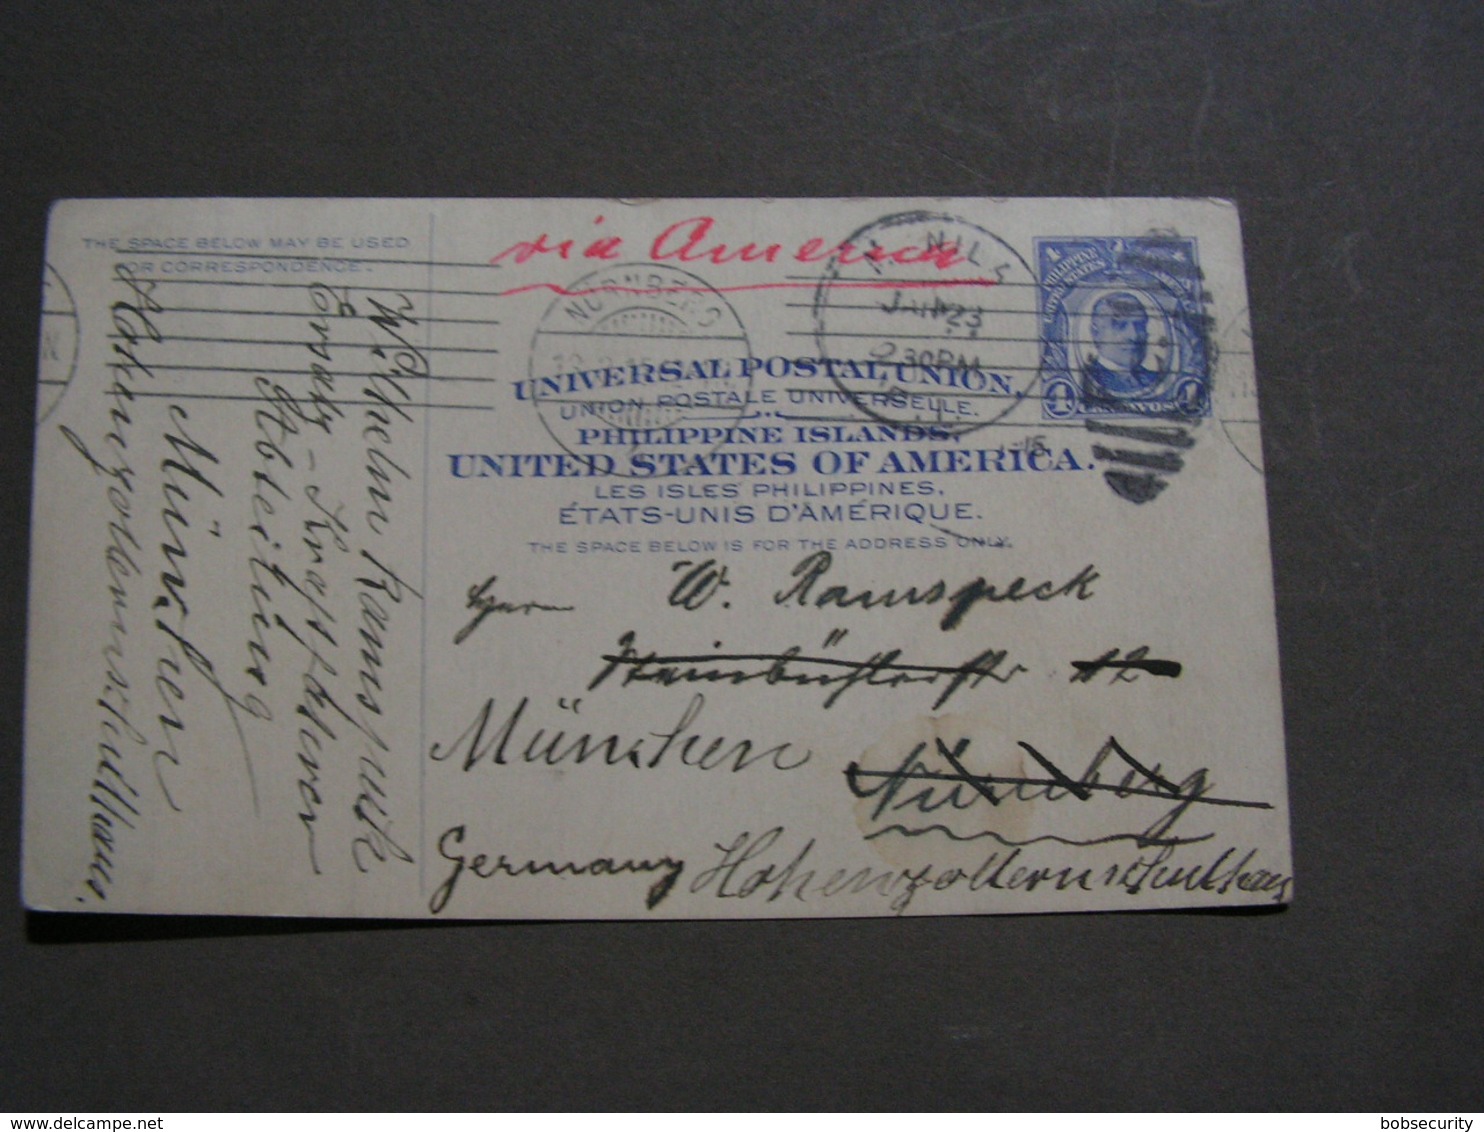 THE SPACE BELOW MAY BE USED
FOR CORRESPONDENCE.
via America
NÜRNBERG
JAN 23
2 30PM
PHILIPPINE ISLANDS
UNITED STATES
4 CENTAVOS 4
UNIVERSAL POSTAL UNION.
UNION POSTALE UNIVERSELLE.
PHILIPPINE ISLANDS.
UNITED STATES OF AMERICA.
1-15
LES ISLES PHILIPPINES,
ÉTATS-UNIS D'AMÉRIQUE.
THE SPACE BELOW IS FOR THE ADDRESS ONLY.
Herrn W. Ramspeck
Steinbühlerstr 12
München Nürnberg
Germany Hohenzollernschulhaus
Wilhelm Ramspeck
Ersatz-Kraftfahrer
Abteilung
München
Hohenzollernschulhaus.
bobsecurity